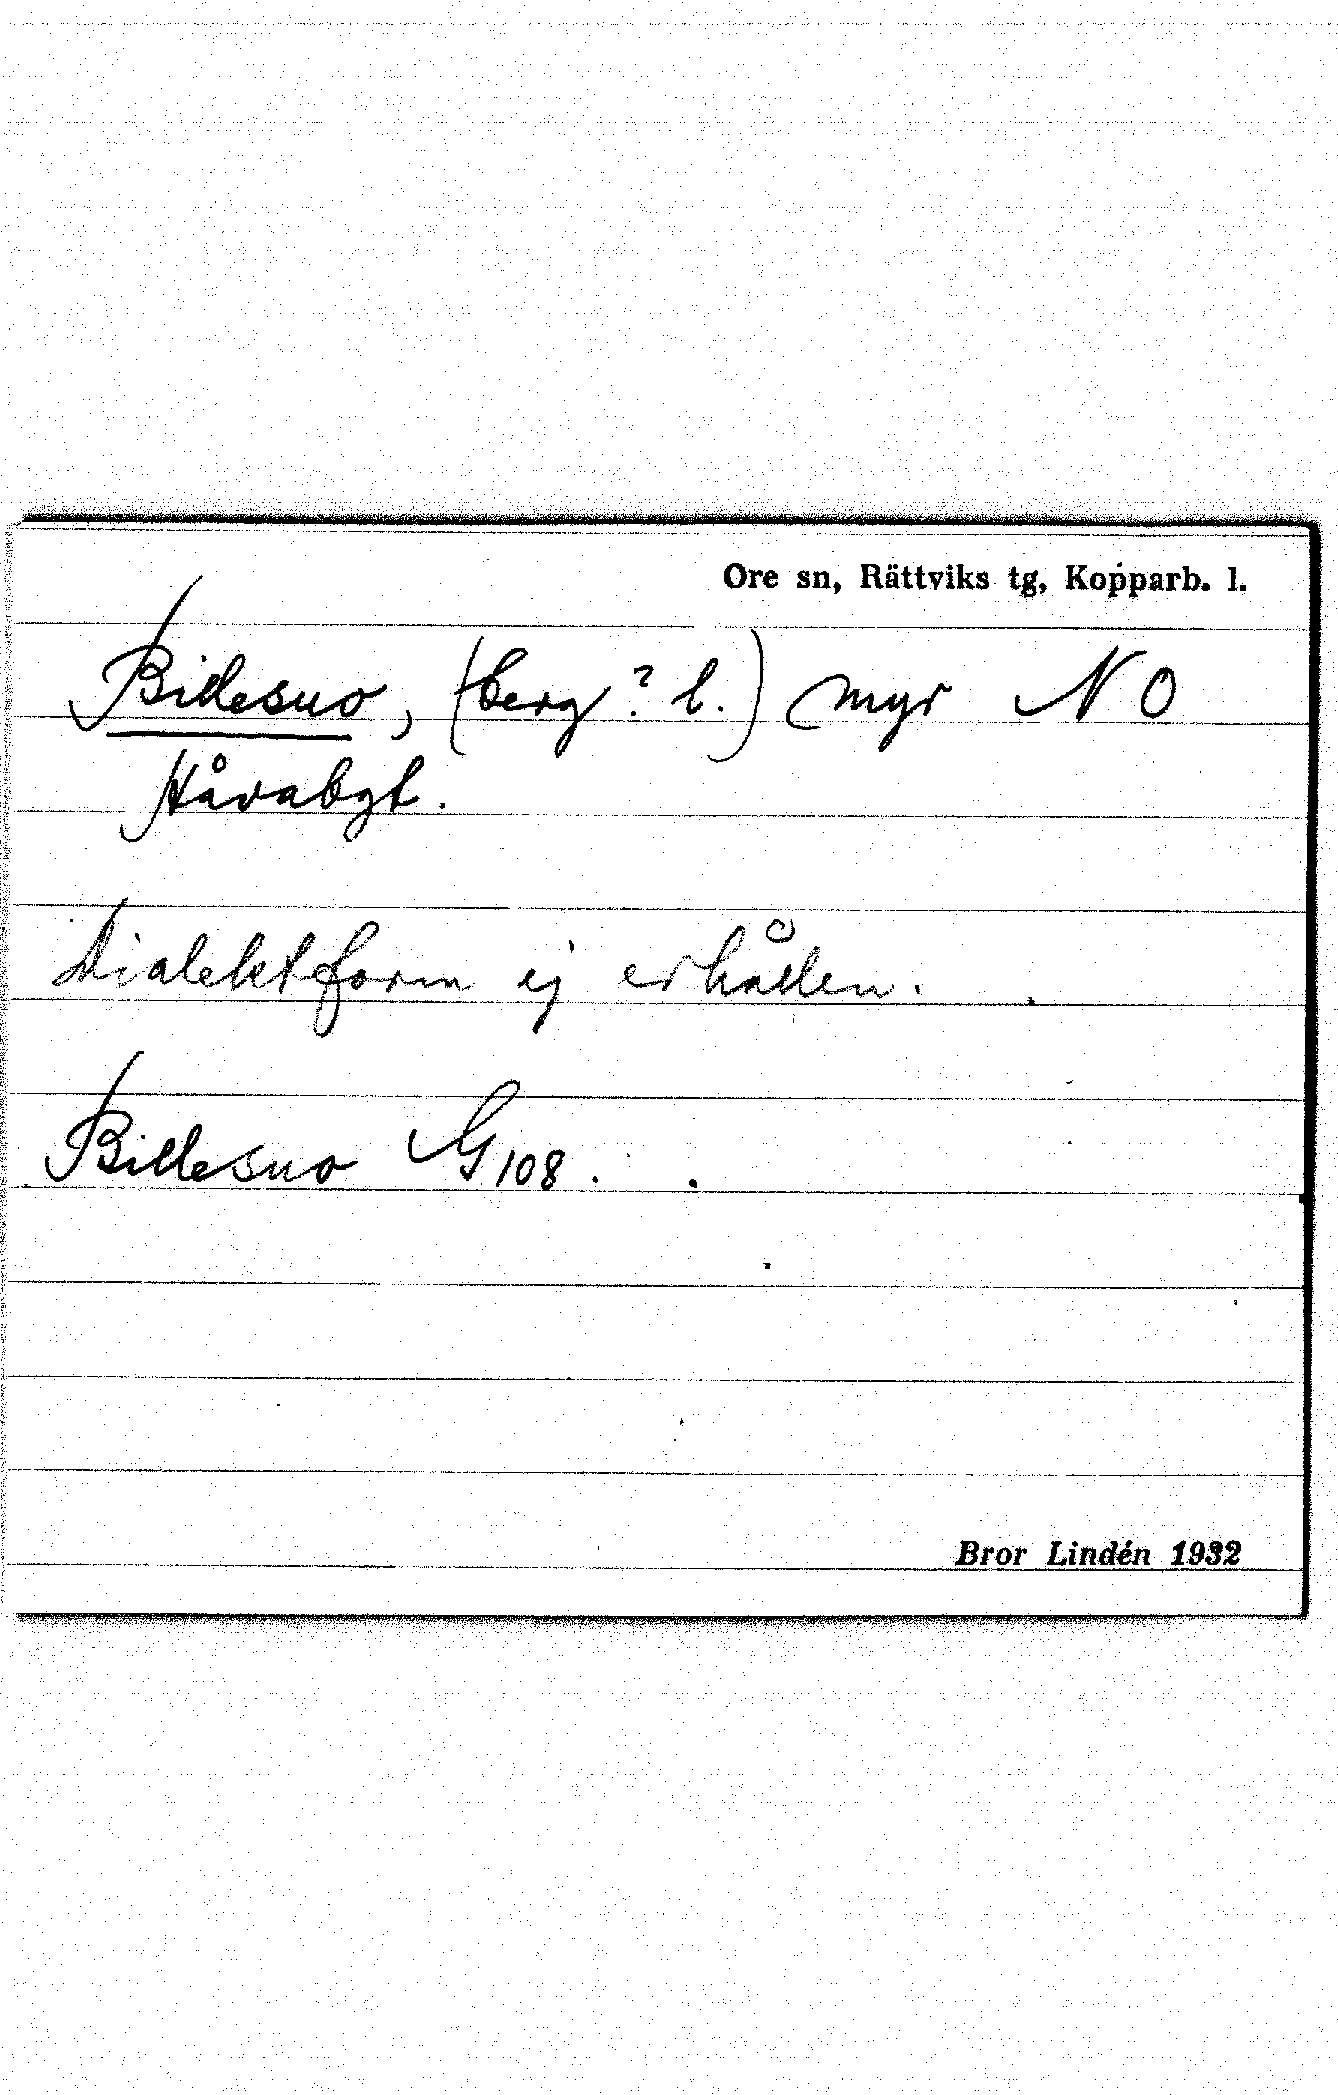 Ore sn, Rättviks tg, Kopparb. l.
Billesuo, (berg? l.) myr NO
Håvabgt.
Dialektform ej erhållen.
Billesuo G108.
Bror Lindén 1932